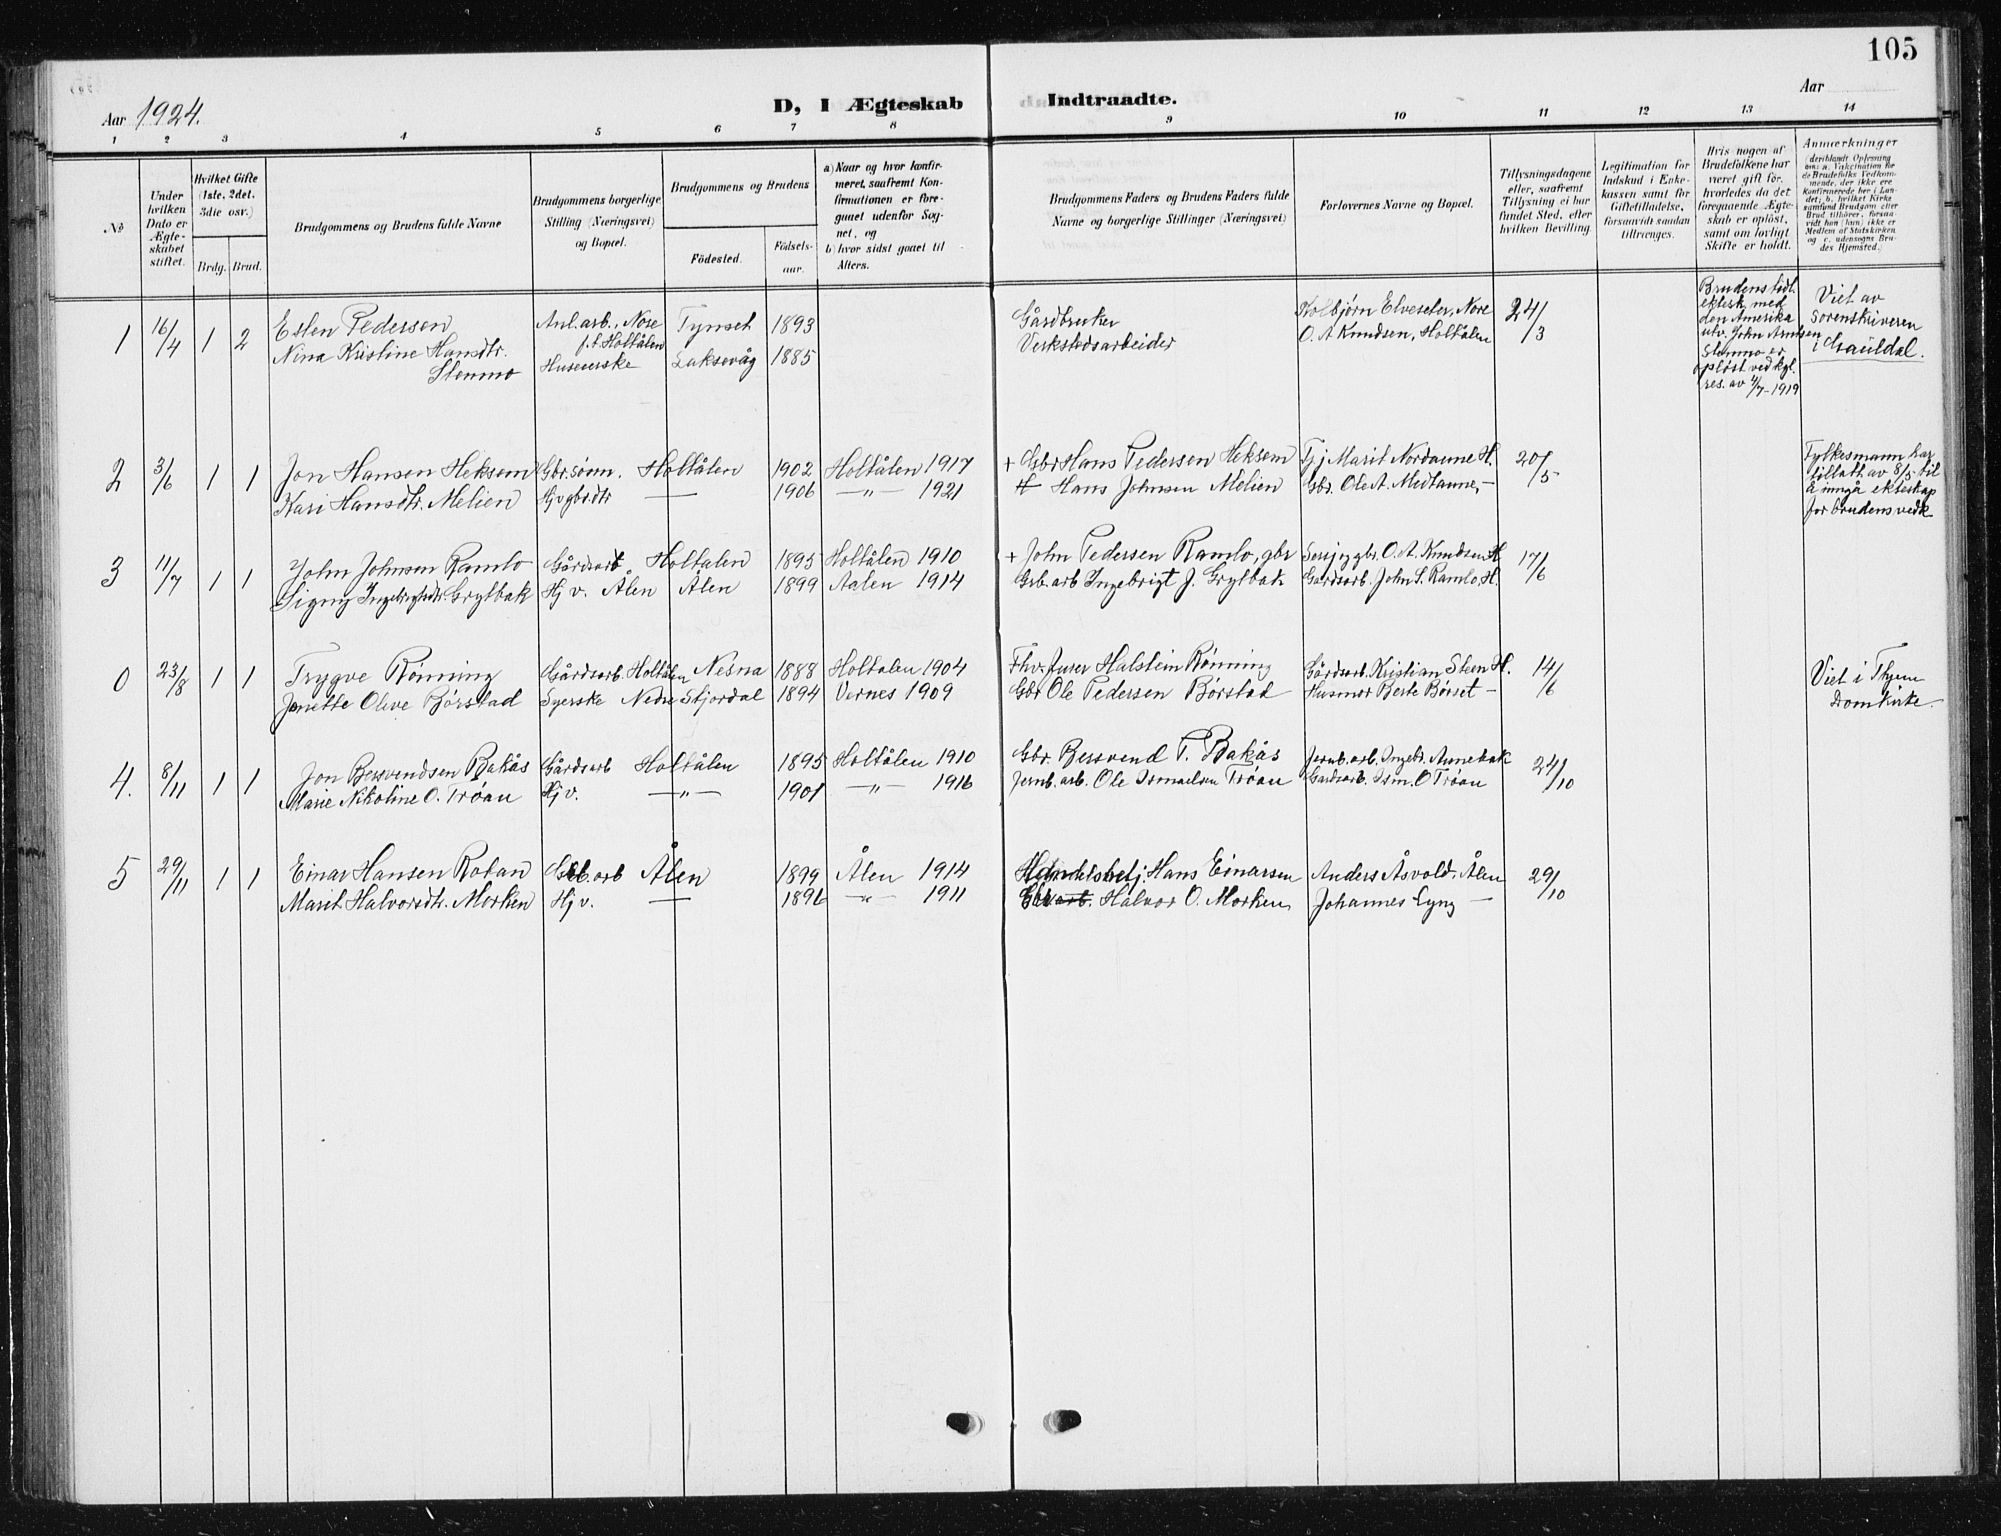 105
Aar 1924.
D, I Ægteskab Indtraadte.
Aar
1 2 3 4 5 6 7 8 9 10 11 12 13 14
No
Under hvilken Dato er Ægteskabet stiftet.
Hvilket Gifte (1ste, 2det, 3die osv.)
Brdg. Brud.
Brudgommens og Brudens fulde Navne
Brudgommens borgerlige Stilling (Næringsvei) og Bopæl.
Brudgommens og Brudens
Födested.
Födsels-aar.
a) Naar og hvor konfirmeret, saafremt Konfirmationen er foregaaet udenfor Sognet, og
b) hvor sidst gaaet til Alters.
Brudgommens Faders og Brudens Faders fulde Navne og borgerlige Stillinger (Næringsvei)
Forlovernes Navne og Bopæl.
Tillysningsdagene eller, saafremt Tillysning ei har fundet Sted, efter hvilken Bevilling.
Legitimation for Indskud i Enkekassen samt for Giftetilladelse, forsaavidt saadan tiltrænges.
Hvis nogen af Brudefolkene har været gift för, hvorledes da det foregaaende Ægteskab er oplöst, samt om lovligt Skifte er holdt.
Anmærkninger
(deriblandt Oplysning om: a. Vakcination for de Brudefolks Vedkommende, der ikke ere Konfirmerede her i Landet; b. hvilket Kirkesamfund Brudgom eller Brud tilhörer, forsaavidt han (hun) ikke er Medlem af Statskirken og c. udensogns Brudes Hjemsted.)
1 16/4 1 2 Esten Pedersen Anl.arb., Nore f.t. Holtålen Tynset 1893 Gårdbruker Kolbjørn Elveseter, Nore 24/3
Nina Kristine Hansdtr. Stenmo Husererske Laksevåg 1885 Verkstedsarbeider O. A. Knudsen, Holtålen
Brudens tidl. ektesk. med den Amerika utv. John Arntsen Stenmo er opløst ved kgl. res. av 4/7-1919
Viet av Sorenskriveren i Gauldal.
2 3/6 1 1 Jon Hansen Heksem Gbr.sønn. Holtålen 1902 Holtålen 1917 + Gbr Hans Pedersen Heksem Tj. Marit Nordaune H. 20/5
Kari Hansdtr. Melien Hjv gbr.dtr — 1906 —"— 1921 Hans Johnsen Melien Gbr. Ole A. Midtaune, —
Fylkesmann har tillatt av 8/5 til å inngå ekteskap for brudens vedk
3 11/7 1 1 John Johnsen Ramlo Gårdsarb Holtalen 1893 Holtålen 1910 + John Pedersen Ramlo, gbr gbr. O. A. Knudsen H 17/6
Signy Ingebrigtsdtr. Grytbak Hj v. Ålen Ålen 1899 Aalen 1914 Grb. arb Ingebrigt J. Grytbak Gårdsarb. John S. Ramlo, H.
0 23/8 1 1 Trygve Rönning Gårdsarb. Holtålen Nesna 1888 Holtalen 1904 Fhv. furer Halstein Rönning Gårdsarb. Kristian Steen H. 14/6
Jenette Olive Bjørstad Syerske Nedre Stjørdal 1894 Vernes 1909 Gbr Ole Pedersen Börstad Husmor Berte Börset —
Viet i Thjem Domkirke.
4. 8/11 1 1 Jon Bersvendsen Bakås Gårdsarb Holtålen 1895 Holtålen 1910 Gbr. Bersvend T. Bakås Jernb. arb. Ingebr. Aunebak 24/10
Marie Nikoline O. Tröan Hj v. —"— 1901 —"— 1916 Jernb. arb. Ole Ismaelsen Tröan Gardsarb. Ism. O Tröan
5 29/11 1 1 Einar Hansen Rotan Gbb. arb Ålen 1899 Ålen 1914 Handelsbetj. Hans Einarsen Anders Åsvold, Ålen 29/10
Marit Halvorsdtr. Morken Hj v. — 1896 —"— 1911 Halvor O. Morken Johannes Lyng —